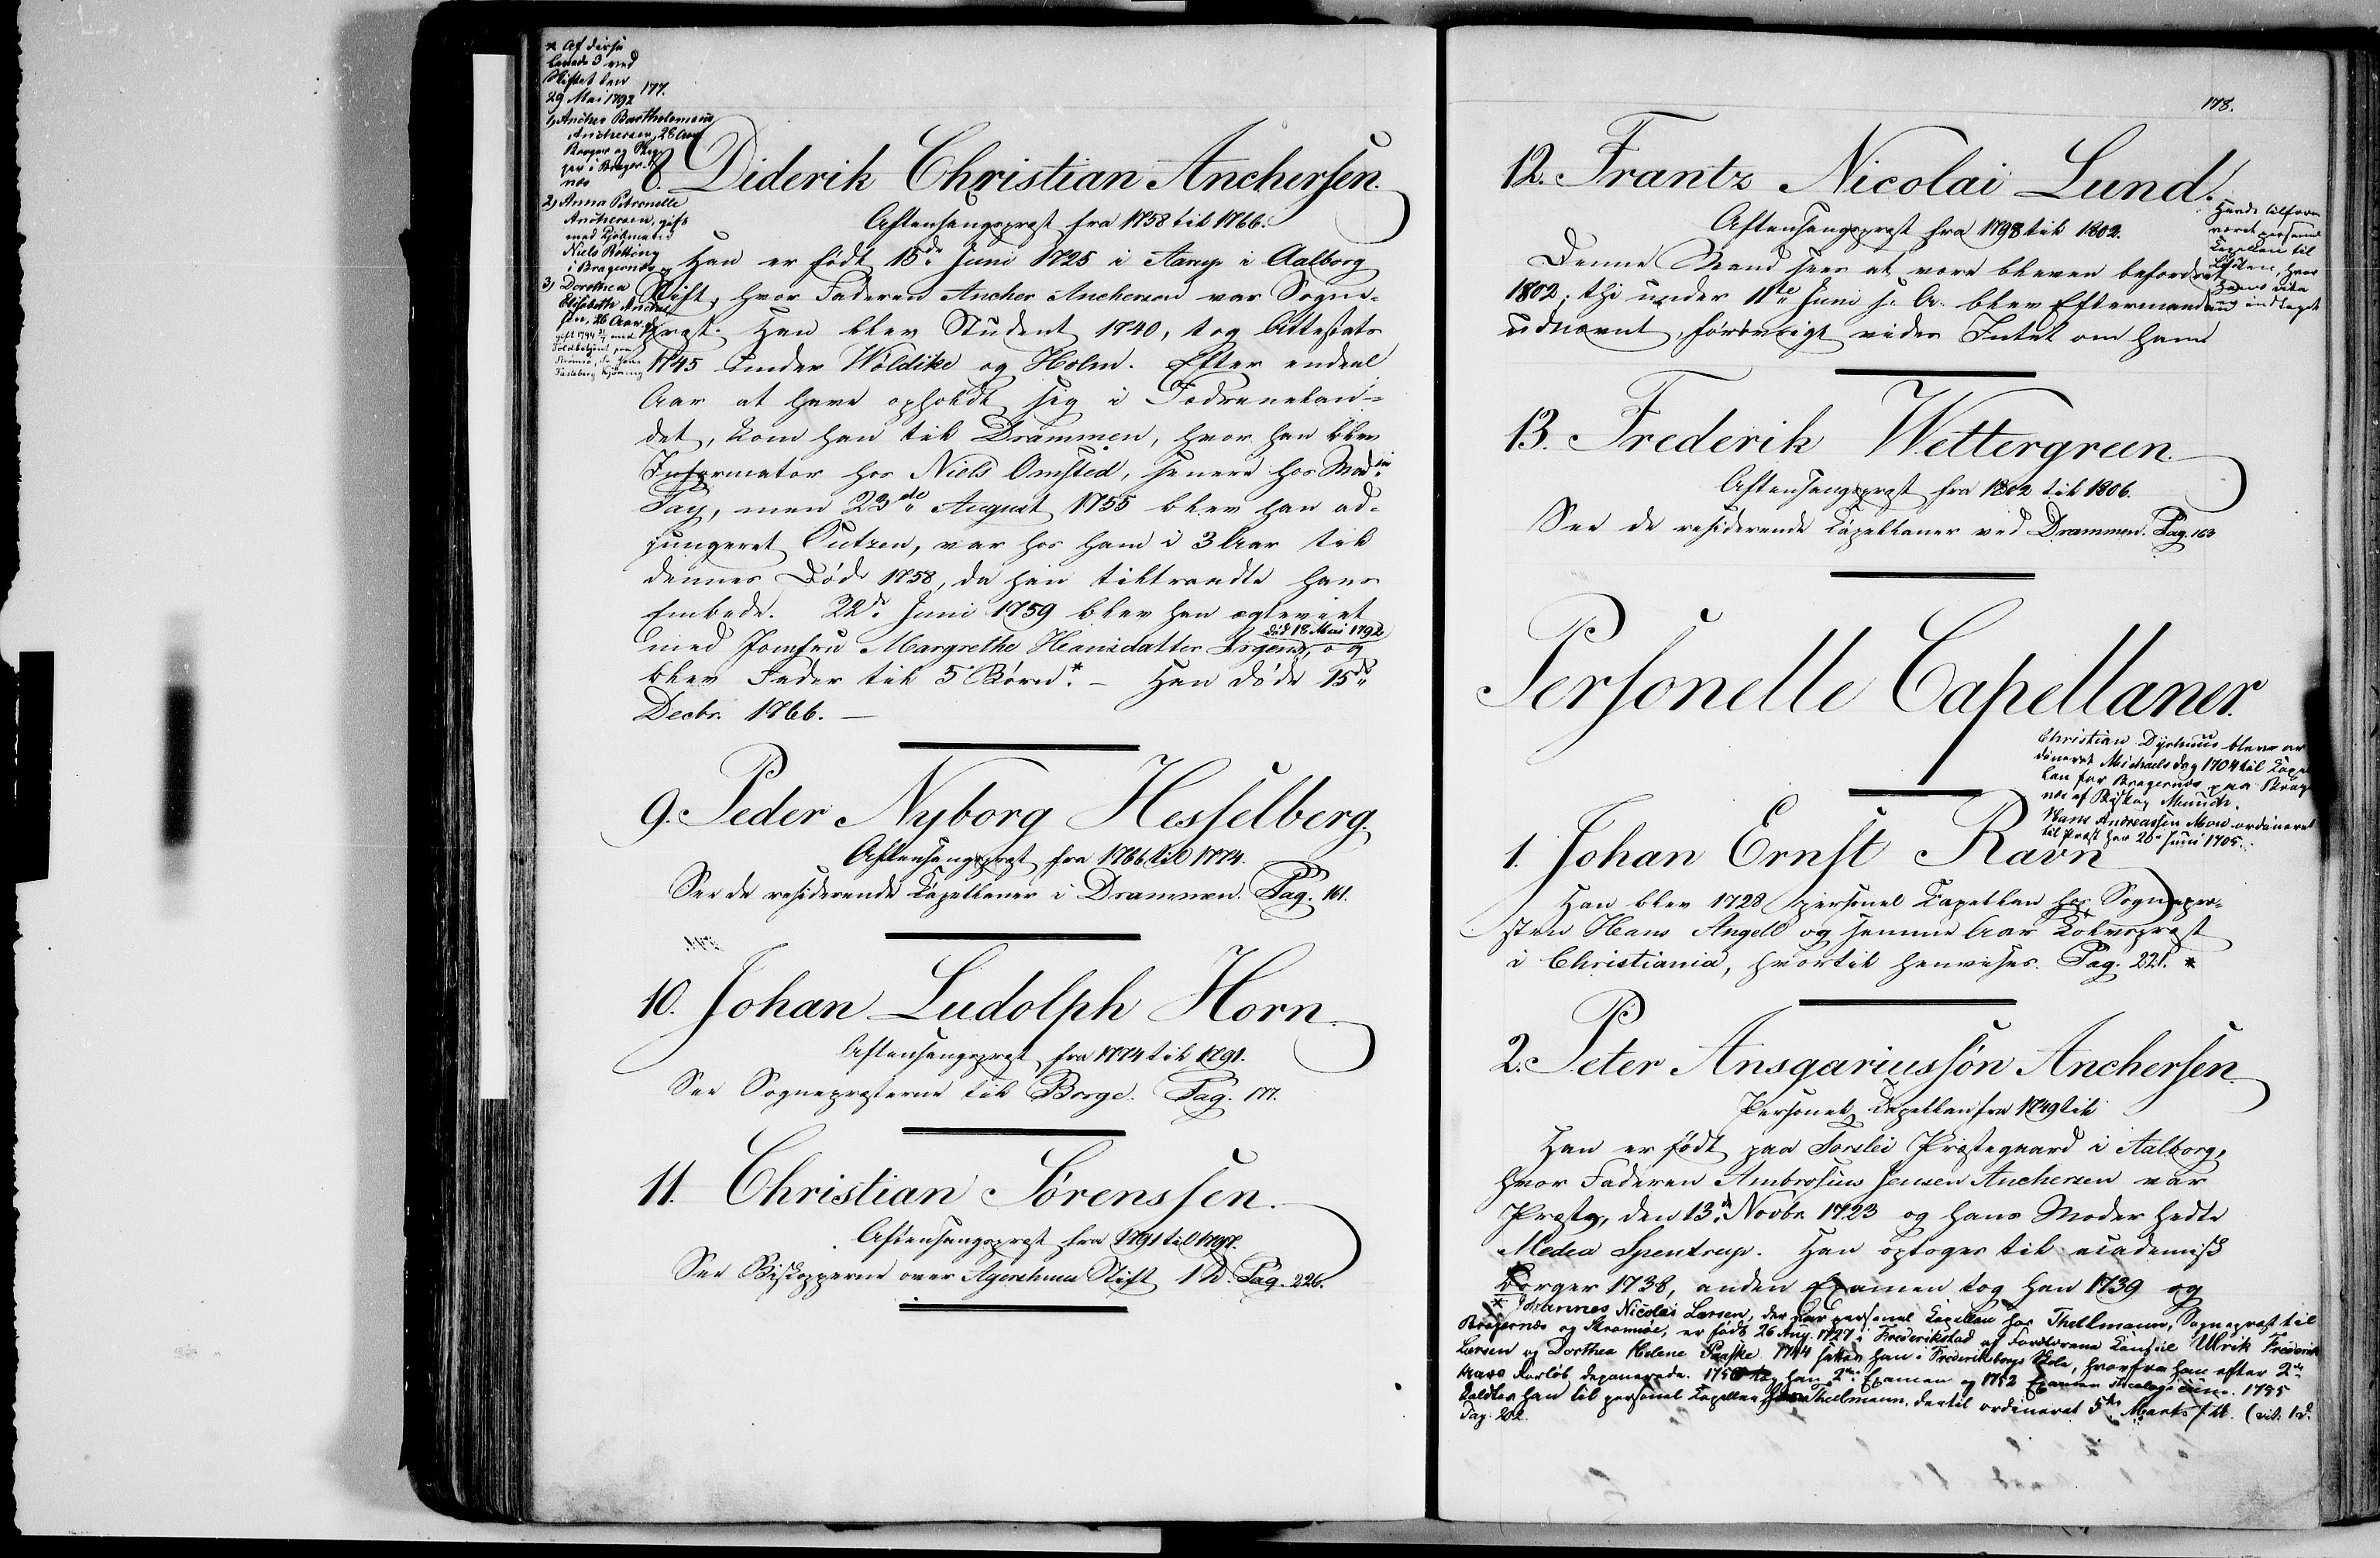 * Af disse
levede 3 ved
Skiftet den
29 Mai 1792
177.
1) Ancher Bartholomæus
Anchersen, 28 Aar
Borger og Skip-
per i Brager-
næs
2) Anna Petronelle
Anchersen, gift
med Kjøbmand
Niels Rötting
i Bragernæs
3) Dorothea
Elisabeth Ancher-
sen, 26 Aar,
8. Diderik Christian Anchersen.
Aftensangspræst fra 1758 til 1766.
Han er født 15de Juni 1725 i Aarup i Aalborg
Stift, hvor Faderen Ancher Anchersen var Sogne-
præst. Han blev Student 1740, tog Attestats
1745 under Wöldike og Holm. Efter endeel
Aar at have opholdt sig i Fædrenelan-
det, kom han til Drammen, hvor han blev
Informator hos Niels Omsted, senere hos Mad:
Fay, men 23de August 1755 blev han ad-
jungeret Outzen, var hos ham i 3 Aar til
dennes Død 1758, da han tiltraadte hans
Embede. 22de Juni 1759 blev han ægteviet
død 18 Mai 1792
med Jomfru Margrethe Hansdatter Irgens, og
blev Fader til 5 Børn.* – Han døde 15de
Decbr. 1766. –
9. Peder Nyborg Hesselberg.
Aftensangspræst fra 1766 til 1774.
See de residerende Capellaner i Drammen. Pag. 161.
10. Johan Ludolph Horn.
Aftensangspræst fra 1774 til 1791.
See Sognepræsterne til Borge. Pag. 177.
11. Christian Sørenssen.
Aftensangspræst fra 1791 til 1797.
See Biskopperne over Agershuus Stift 1 D. Pag. 226.
178.
12. Frantz Nicolai Lund.
Aftensangspræst fra 1798 til 1802.
Havde tilforn
været personel
Capellan til
hvor
hans vita
og indlagt
Denne Mand sees at være bleven befordret
1802; thi under 11te Juni s. A. blev Eftermanden
udnævnt, forøvrigt vides Intet om ham
13. Frederik Wettergreen.
Aftensangspræst fra 1802 til 1806.
See de residerende Capellaner ved Drammen. Pag. 163
Personelle Capellaner.
Christian Dyrhuus blev or-
dineret Michaels dag 1704 til Capel
lan for Bragernæs paa Brager
næs af Biskop Munch.
Hans Andreassen Moe ordineret
til Præst her 26de Juni 1705.
1. Johan Ernst Ravn
Han blev 1728 personel Capellan hos Sognepræ-
sten Hans Angell og samme Aar
i Christiania, hvortil henvises. Pag. 221. *
2. Peter Ansgariussøn Anchersen.
Personel Capellan fra 1749 til
Han er født paa Torslei Præstegaard i Aalborg,
hvor Faderen Ambrosius Jensen Anchersen var
Præst, den 13de Novbr 1723 og hans Moder hedte
Medea Spentrup. Han optoges til academisk
Borger 1738, anden Examen tog han 1739 og
* Johannes Nicolai Larsen, der var personel Capellan hos Thellmann, Sognepræst til
Bragernæs og Strømsøe, er født 26 Aug. 1727 i Frederikstad af Forældrene Ulrik Frederik
Larsen og Dorthea Helene Paaske. 1744 sattes han i Frederiksborgs Skole, hvorfra han efter 2de
Aars Forløb deponerede. 1750 tog han 2den Examen og 1752 Examen theologicum. 1755
kaldtes han til personel Capellan hos Thellmann, dertil ordineret 5te Marts s. A. (vid. 1 D.
Pag. 202.